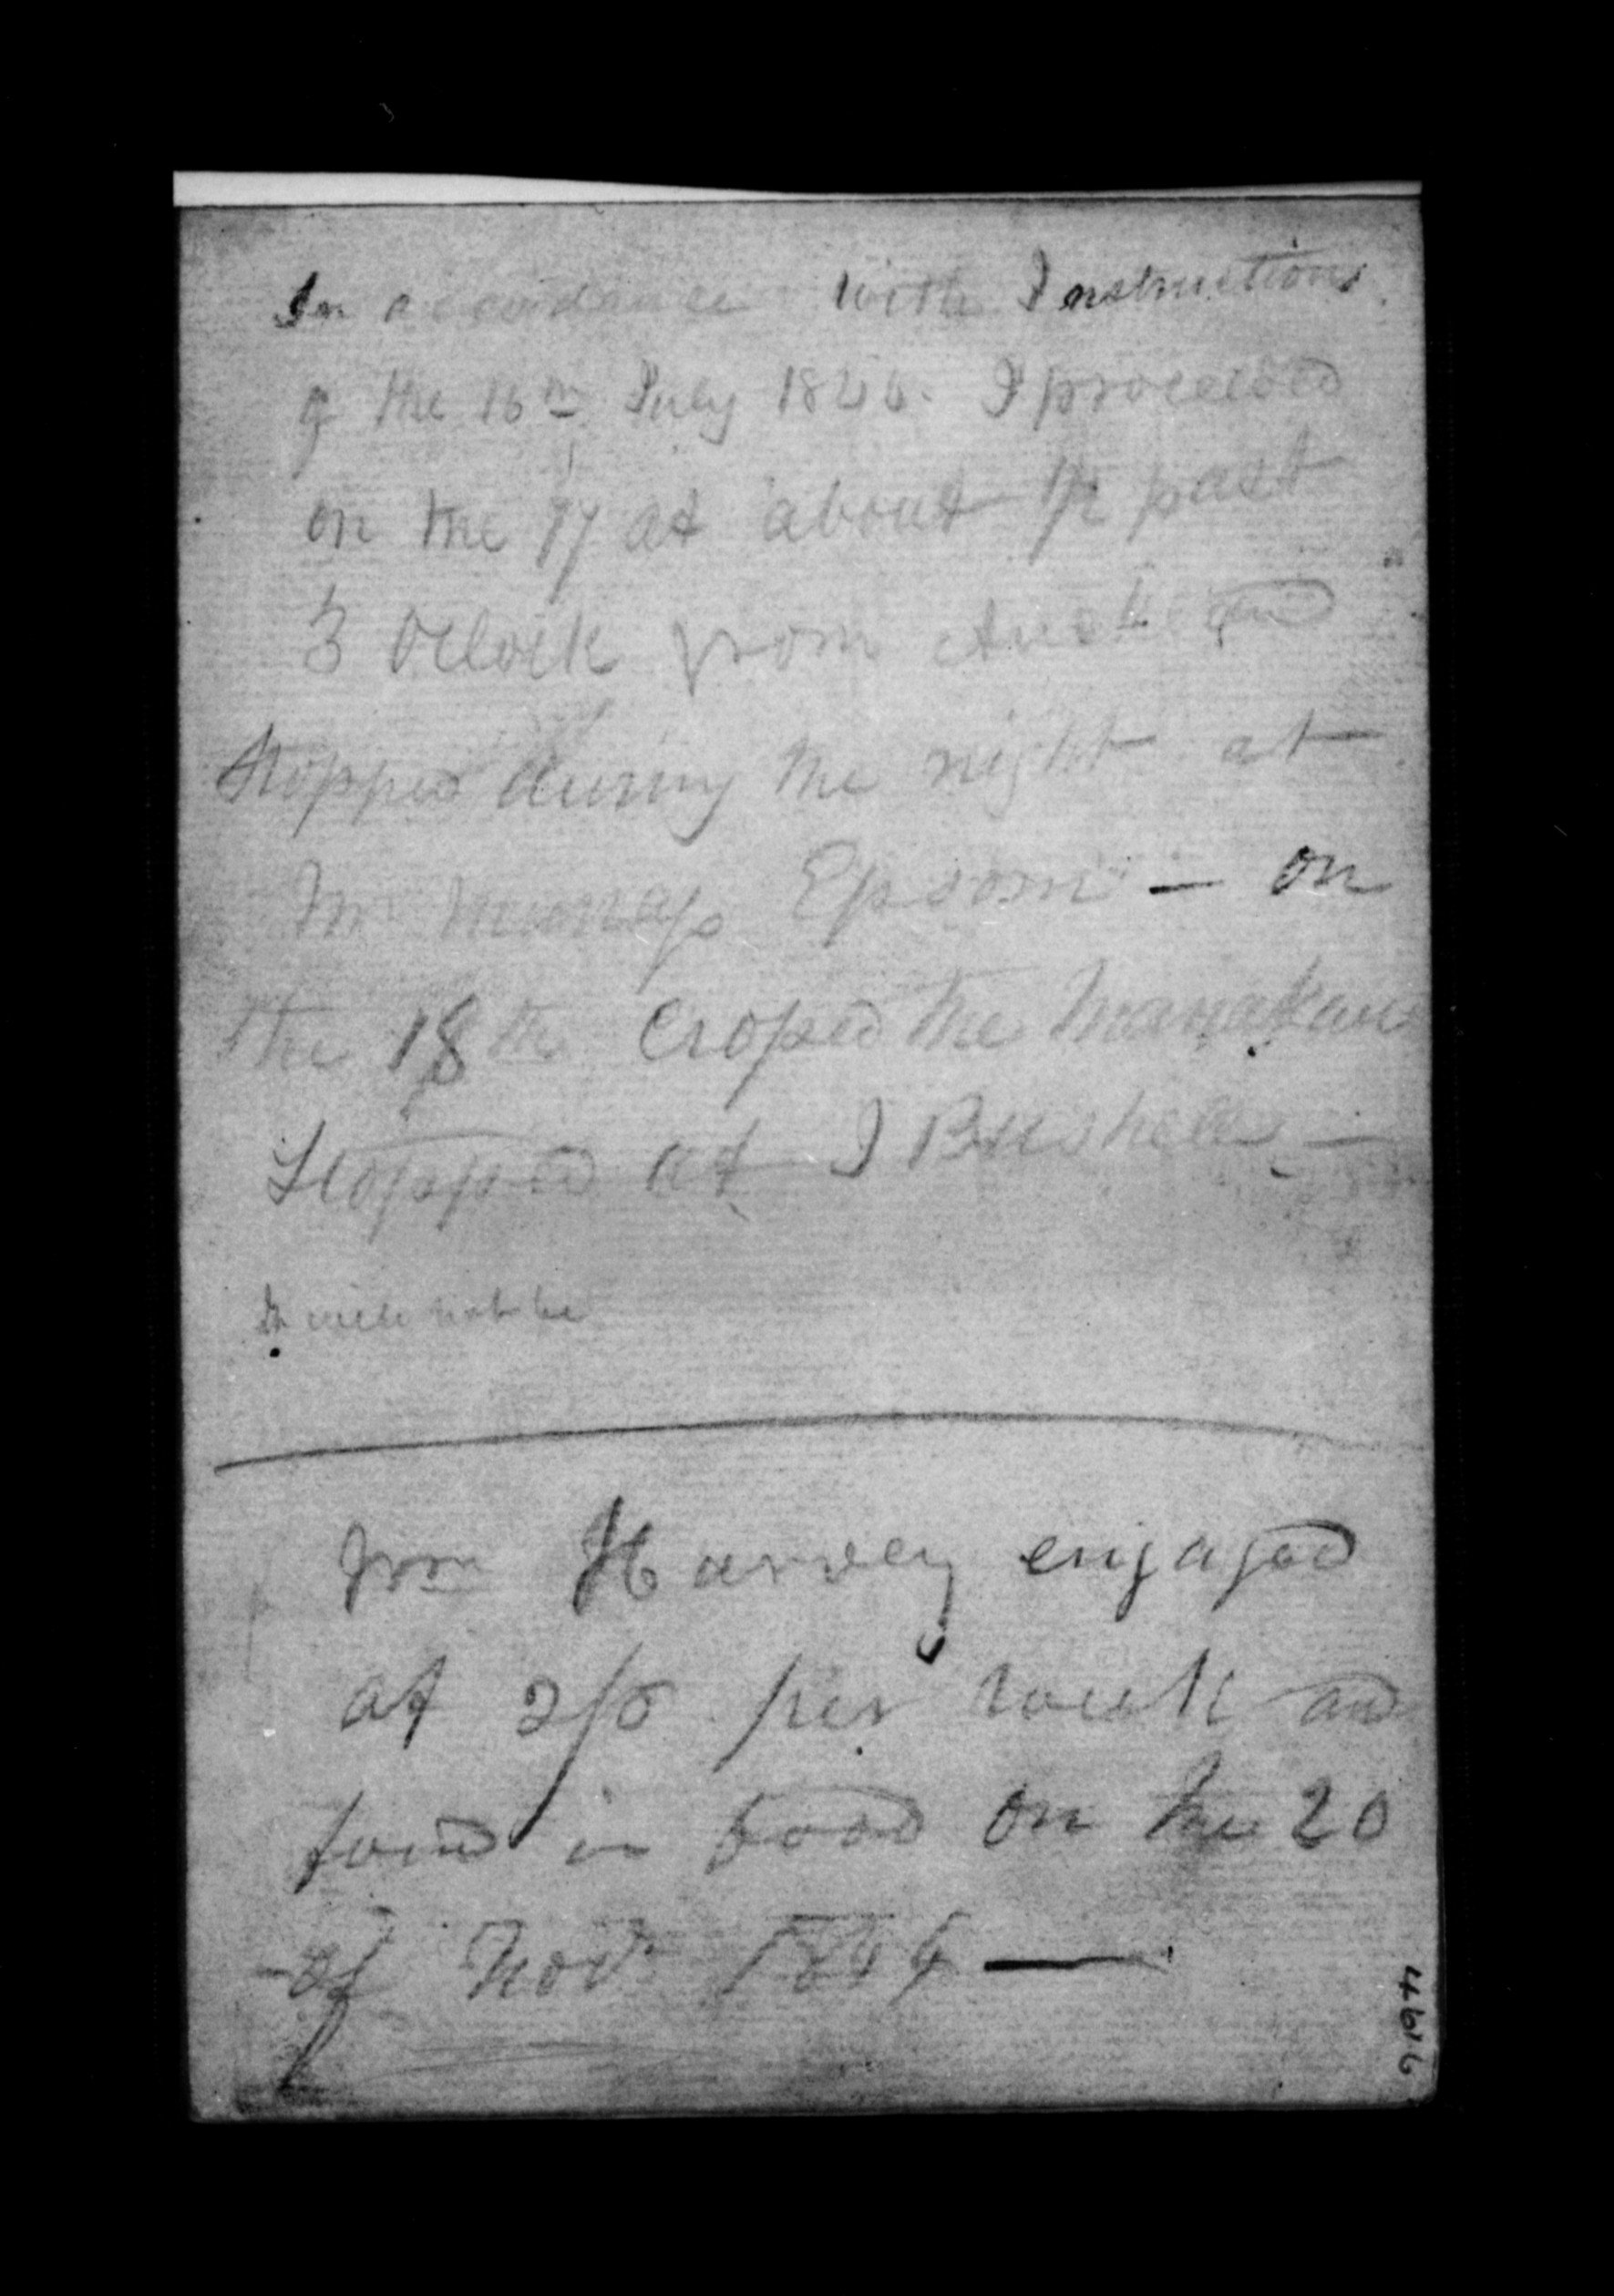 In accordance with Instructions
of the 16th July 1846. I proceeded
on the 17 at about 1/2 past
3 OClock from Auckd and
Stopped during the night at
Mr Murrays Epsom — on
the 18th Crossed the Manakau
Stopped at I Bushells —
It will not be
Wm Harvey engaged
at 2/6 per week and
found in food on the 20
of Novr 1846 —
4616